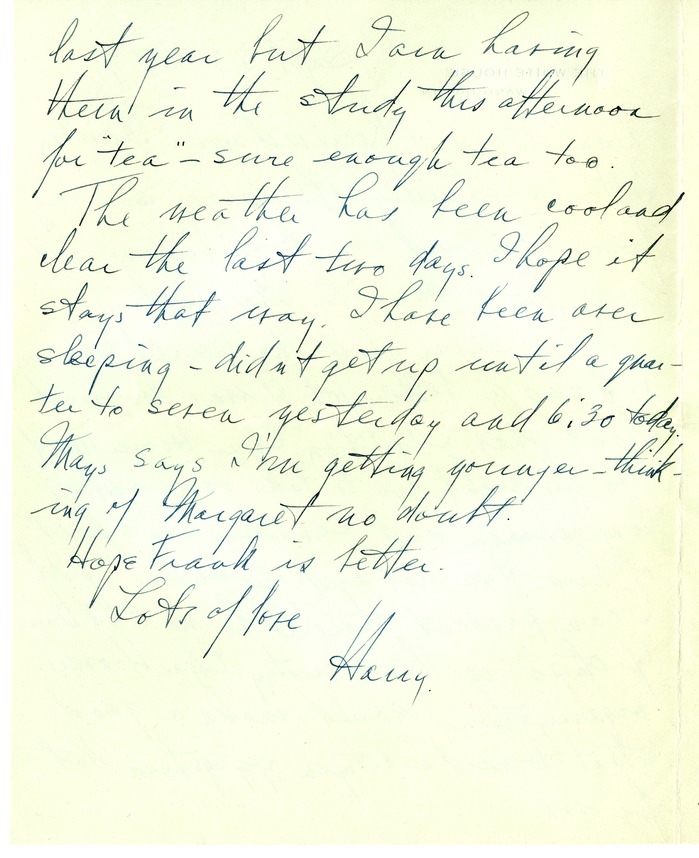 last year but I am having
them in the study this afternoon
for "tea" – sure enough tea too.
The weather has been cool and
clear the last two days. I hope it
stays that way. I have been over
sleeping – didn't get up until a quar-
ter to seven yesterday and 6:30 today.
Mays says I'm getting younger – think-
ing of Margaret no doubt.
Hope Frank is better.
Lots of love
Harry.